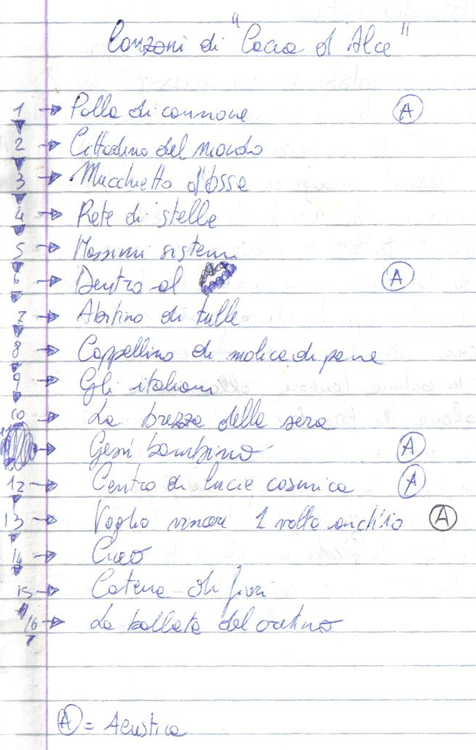 Canzoni di " d'Alce"
1 → Palla di cannone Ⓐ
2 → Cittadino del mondo
3 → Mucchietto d'osse
4 → Rete di stelle
5 → Massimi sistemi
6 → Dentro al Ⓐ
7 → Abitino di tulle
8 → Cappellino di molica di pane
9 → Gli italiani
10 → La brezza della sera
Gesù bambino Ⓐ
12 → Centro di cosmica Ⓐ
13 → Voglio vincere 1 volta anch'io Ⓐ
14 →
15 → Catena di fiori
16 → La ballata del cretino
Ⓐ = Acustica